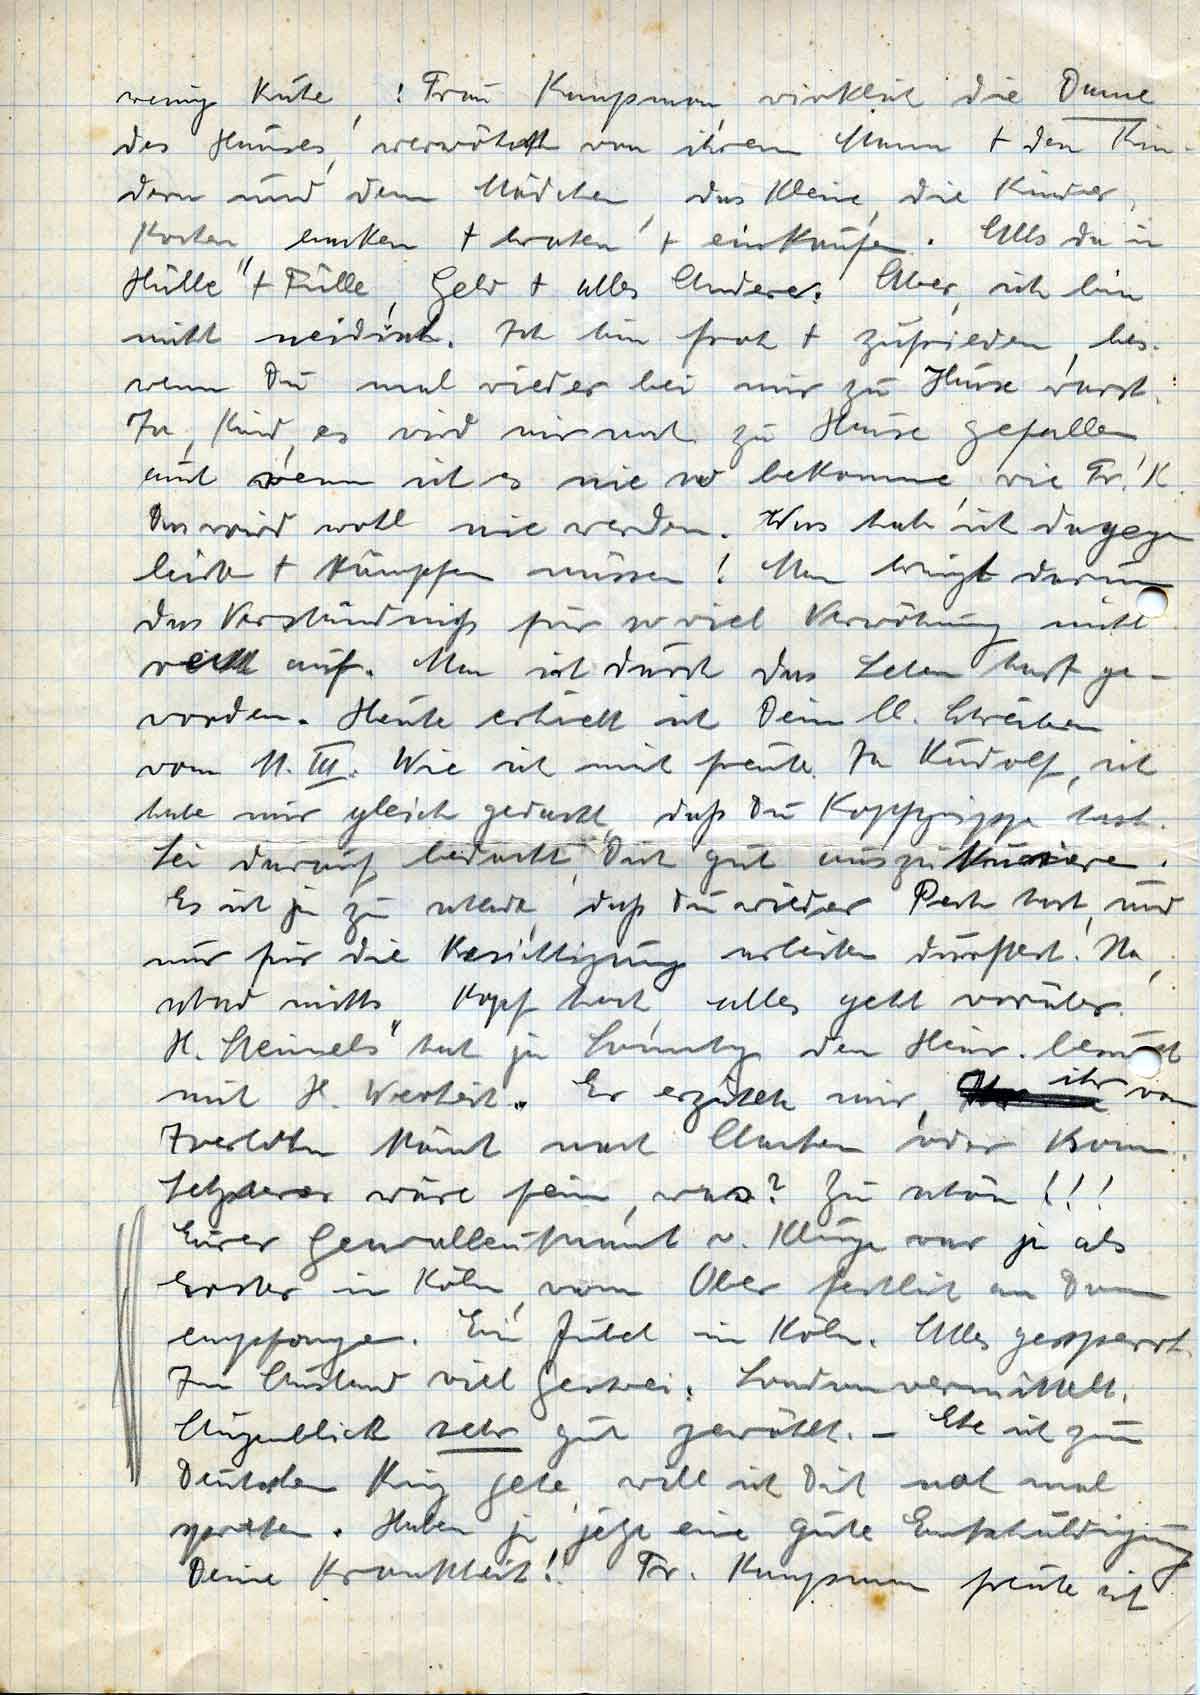 wenig Kühe! Frau Kaufmann, wirklich die Dame
des Hauses, verwöhnt von ihrem Mann + den Kin-
dern und dem Mädchen, das Kleine, die Kinder,
Kochen, backen + braten, + einkaufen. Alls da in
Hülle" + Fülle, Geld + alles Andere. Aber, ich bin
nicht neidisch. Ich bin froh + zufrieden, bes.
wenn Du mal wieder bei mir zu Hause warst.
Ja, Kind, es wird mir auch zu Hause gefallen
und wenn ich es nie so bekomme, wie Fr. K.
Das wird wohl nie werden. Was hab' ich dagegen
leiden + kämpfen müssen! Man bringt darum
das Verständniß für so viel Verwöhnung nicht
recht auf. Man ist durch das Leben hart ge-
worden. Heute erhielt ich Dein lb. Schreiben
vom 11. III. Wie ich mich freute. Ja Rudolf, ich
habe mir gleich gedacht, daß Du Kopfgrippe hast.
Sei darauf bedacht, Dich gut auszukurieren.
Es ist ja zu schade, daß Du wieder Pech hast, und
nur für die Besichtigung arbeiten dürftest! Na,
schad nichts, Kopf hoch, alles geht vorüber.
H. hat ja den Heinr. besucht
mit H. Er erzählte mir, ihr von
Iserlohn kämt nach Aachen oder Bonn.
Letzteres wäre fein, was? Zu schön!!!
Eurer Generalleutnant v. Kluge war ja als
Erster in Köln, vom Ober festlich am Dom
empfangen. Ein Jubel in Köln. Alles gesperrt.
Im Ausland viel Geschrei. London vermittelt.
Augenblick sehr gut gewählt. – Ehe ich zum
Deutschen Ring gehe, will ich Dich noch mal
sprechen. Haben ja jetzt eine gute Entschuldigung
Deine Krankheit! Fr. Kaufmann freute sich